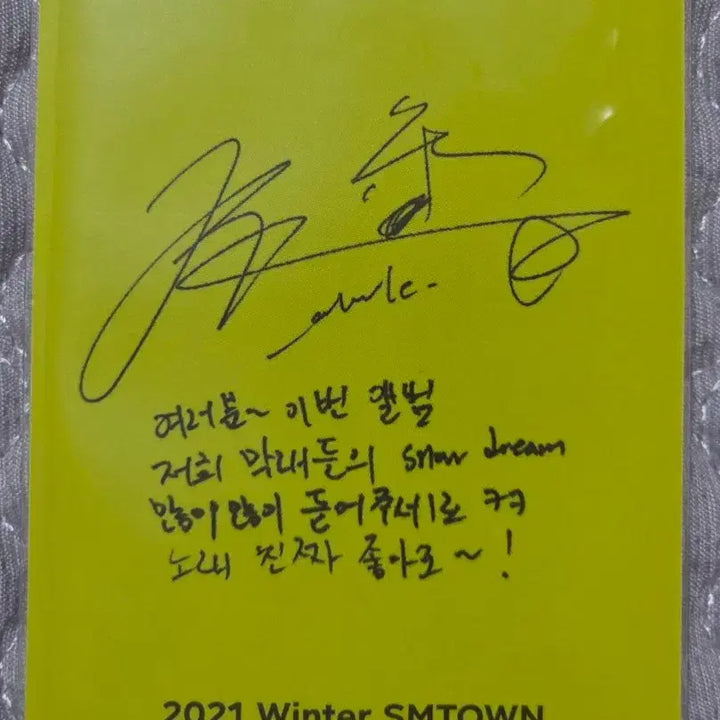 여러분~ 이번 앨범
저희 막내들의 snow dream
많이많이 들어주세요 ㅋㅋ
노래 진짜 좋아요~!
2021 Winter SMTOWN